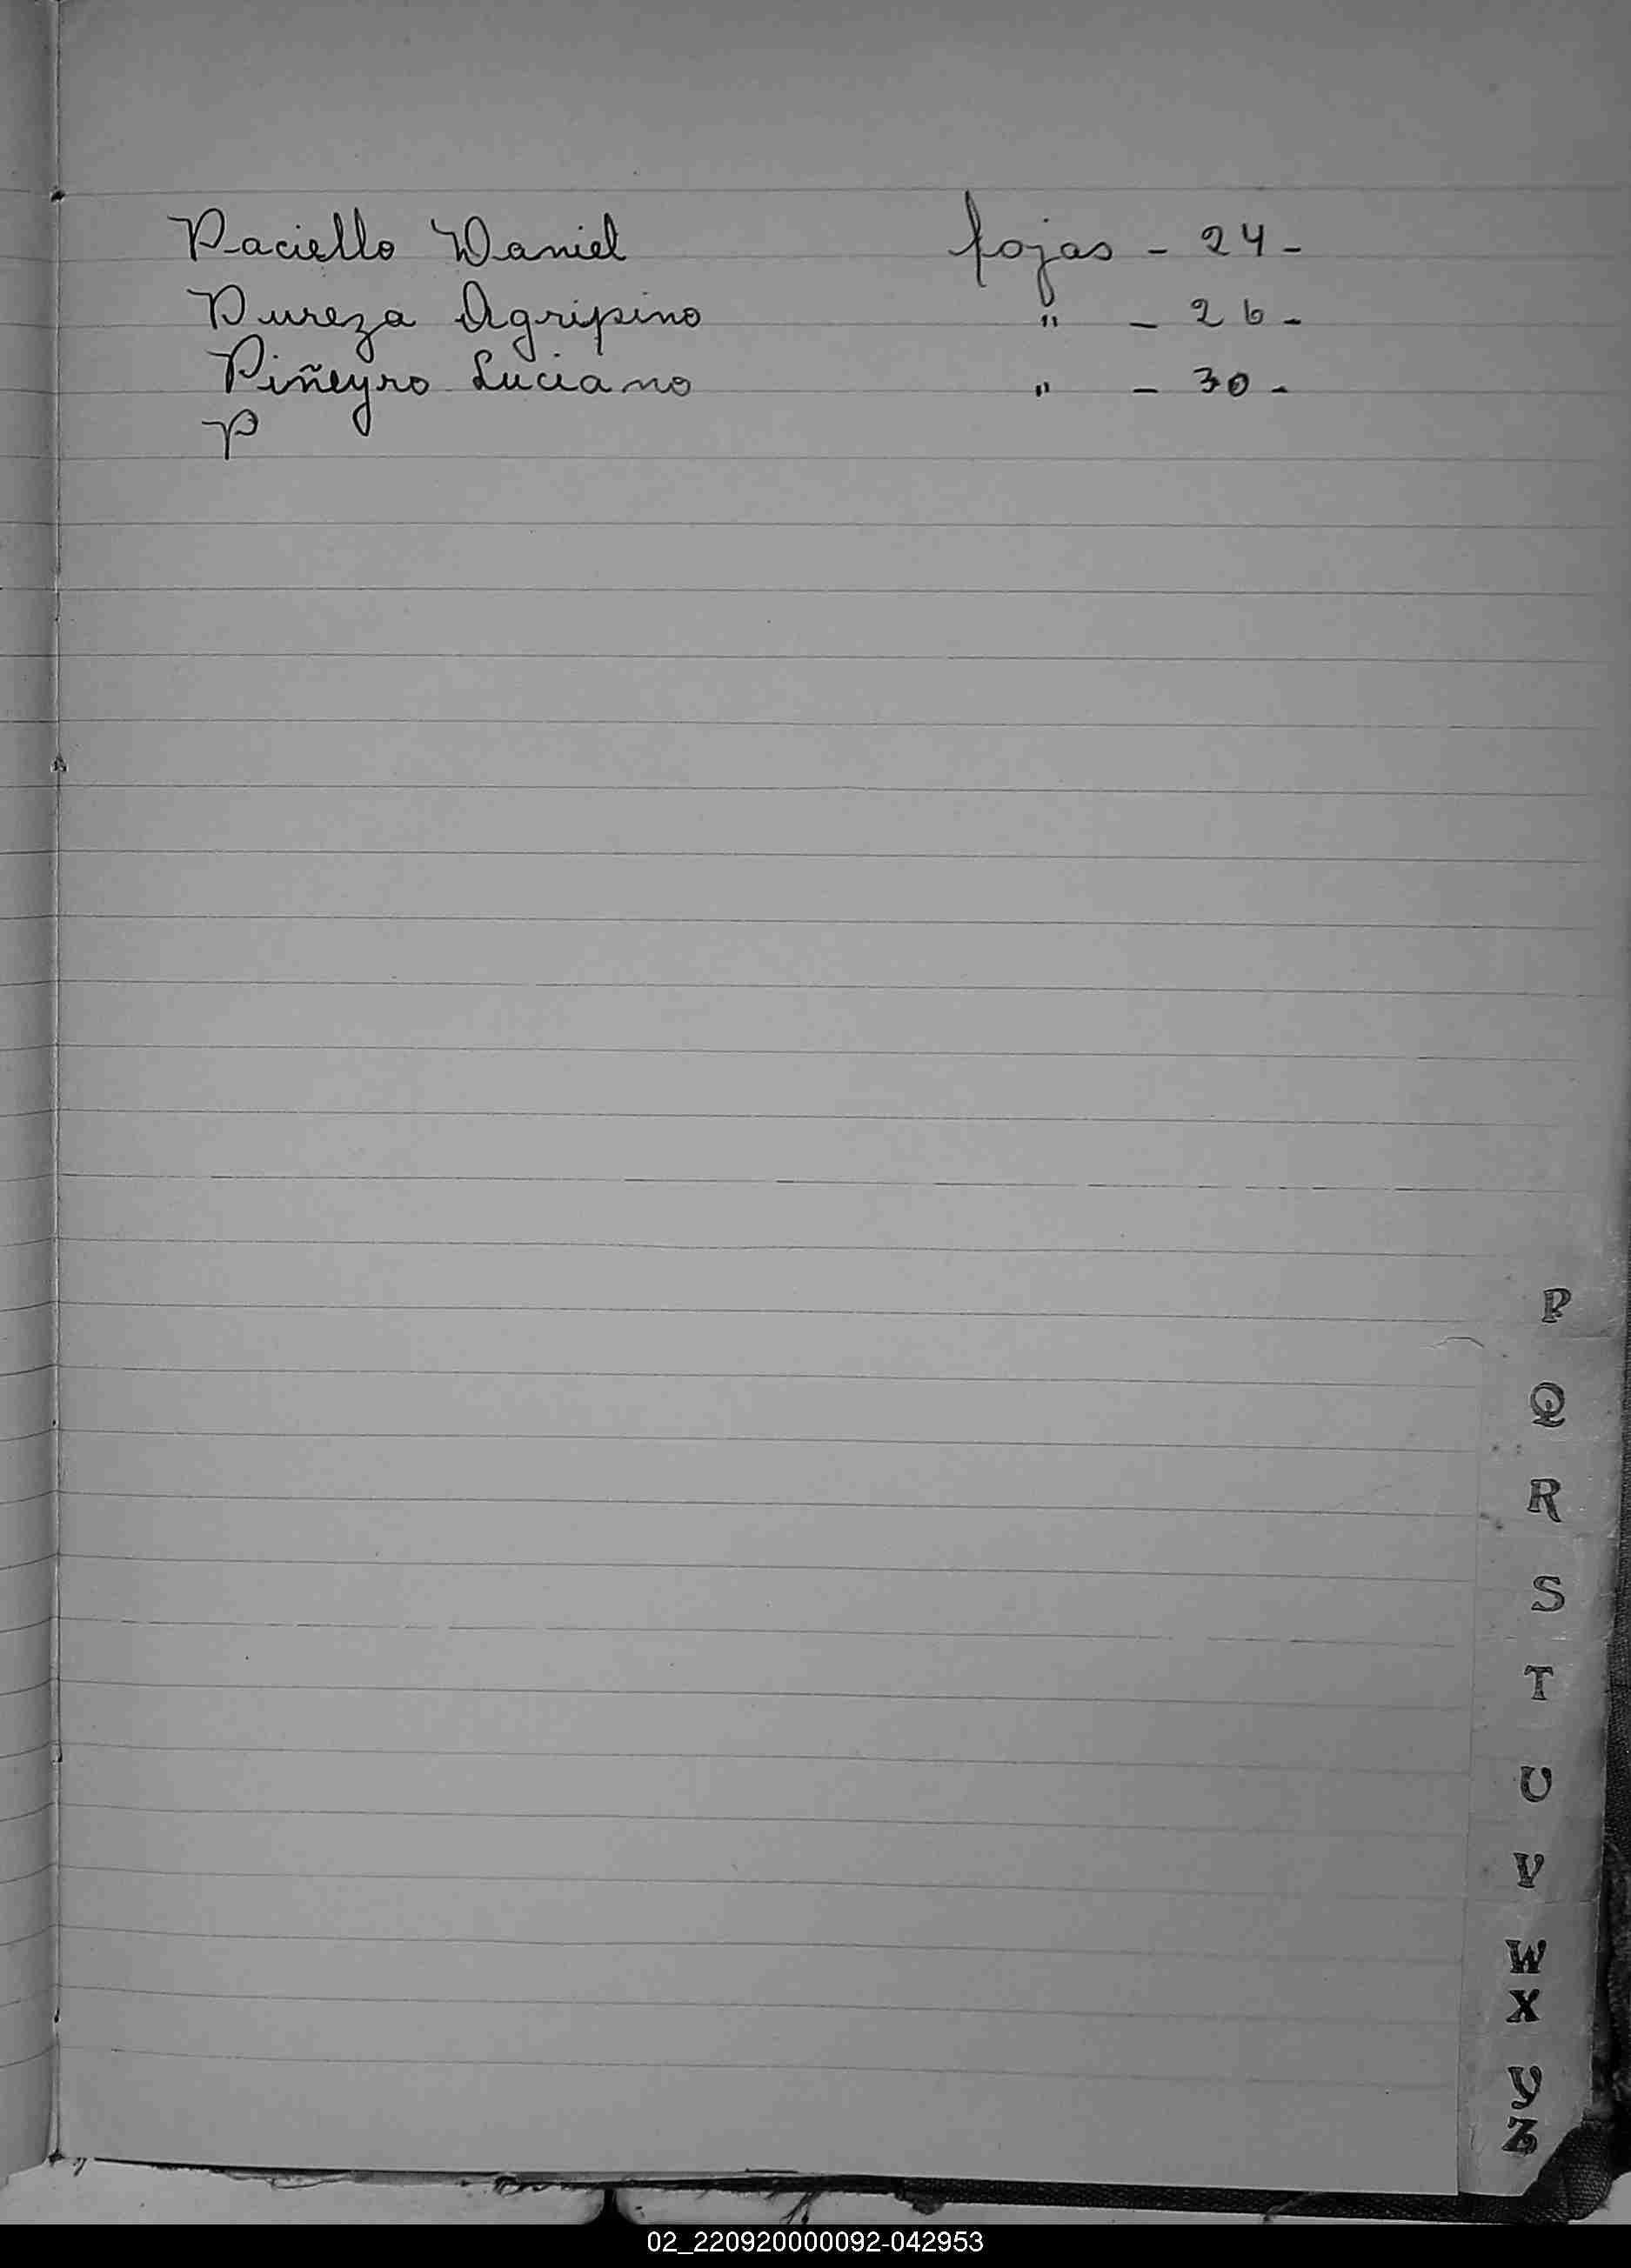 Paciello Daniel fojas - 24 -
Pureza Agripino " - 26 -
Piñeyro Luciano " - 30 -
P
P
Q
R
S
T
U
V
W
X
Y
Z
02_220920000092-042953